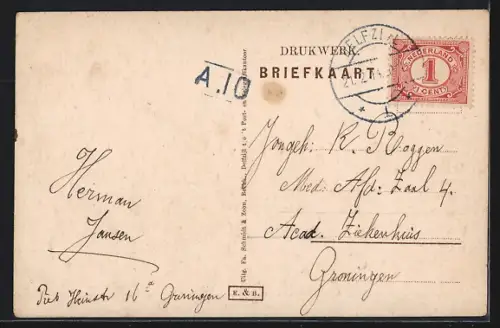 DRUKWERK.
BRIEFKAART
DELFZIJL
NEDERLAND
1
CENT
A.10
Jongeh: K. Roggen
Med: Afd: Zaal 4.
Acad. Ziekenhuis
Groningen
Herman
Jansen
Piet Heinstr 16a Groningen
Uitg. Fa. Schuelm & Zoon, Delfzijl t.o. 't Post- en
E. & B.